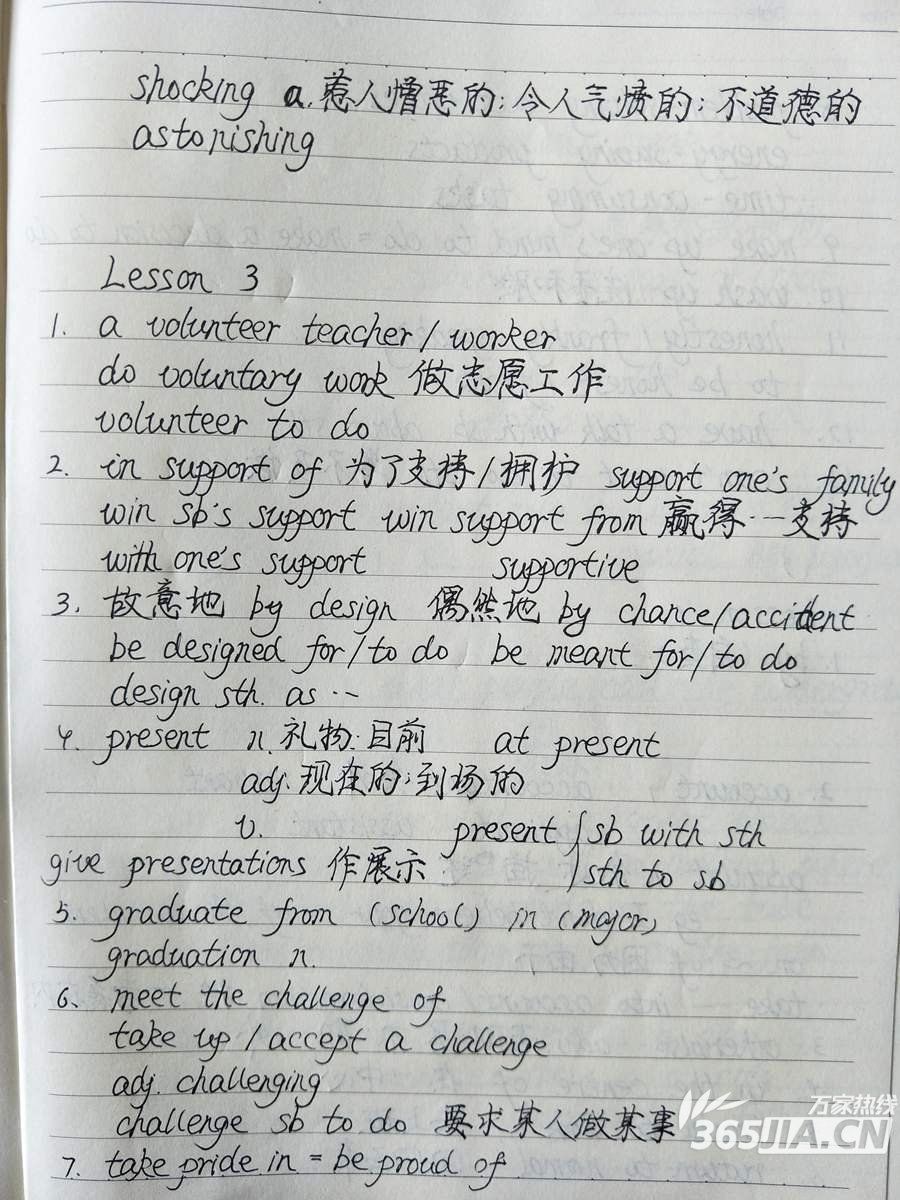 shocking a. 惹人憎恶的; 令人气愤的; 不道德的
astonishing
Lesson 3
1. a volunteer teacher / worker
do voluntary work 做志愿工作
volunteer to do
2. in support of 为了支持/拥护 support one's family
win sb's support win support from 赢得…支持
with one's support supportive
3. 故意地 by design 偶然地 by chance/accident
be designed for/to do be meant for/to do
design sth. as …
4. present n. 礼物; 目前 at present
adj. 现在的; 到场的
v. present sb with sth
give presentations 作展示 sth to sb
5. graduate from (school) in (major)
graduation n.
6. meet the challenge of
take up / accept a challenge
adj. challenging
challenge sb to do 要求某人做某事
7. take pride in = be proud of
万家热线
365JIA.CN